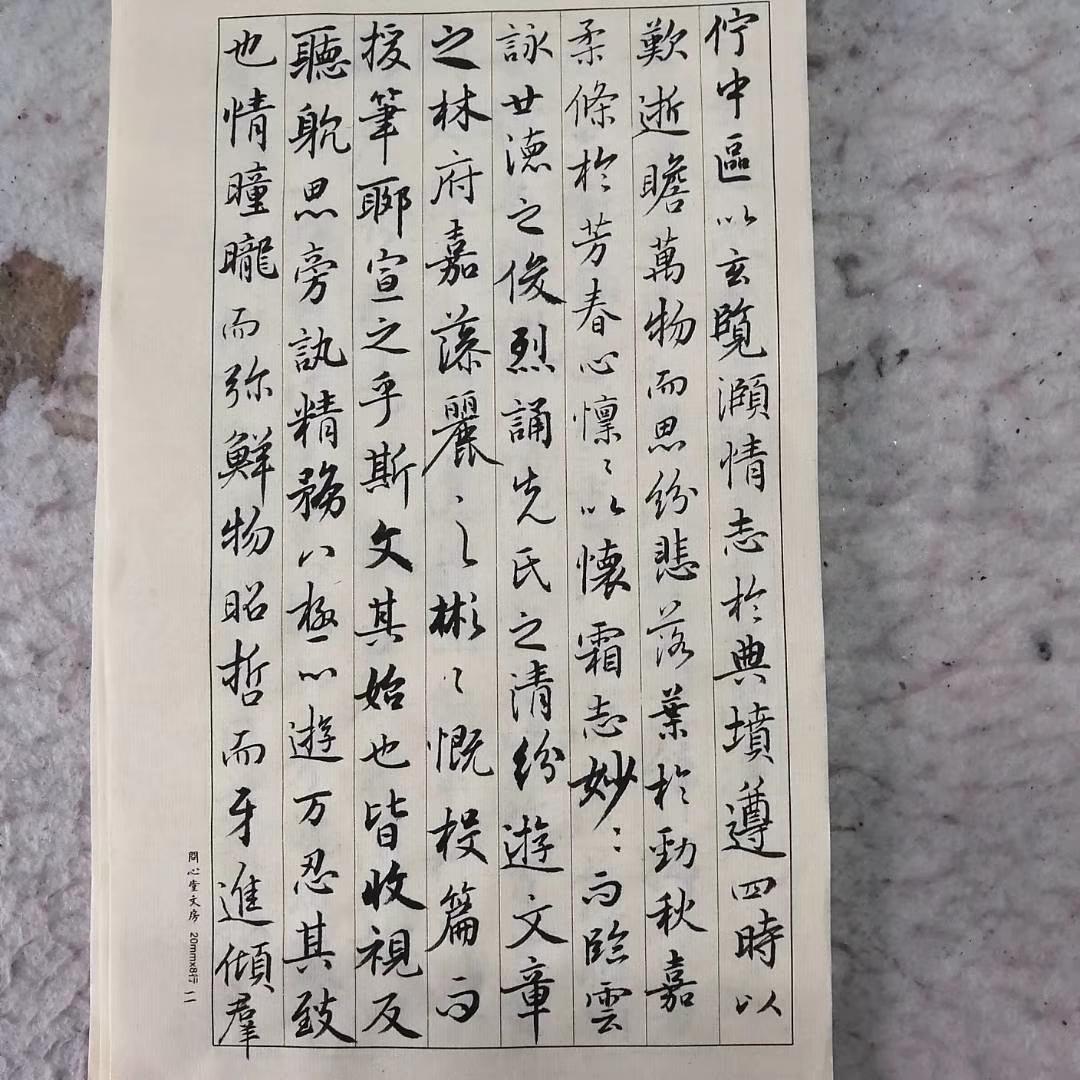 佇中區以玄覽灝情志於典墳遵四時以
歎逝瞻萬物而思紛悲落葉於勁秋嘉
柔條於芳春心懍〻以懷霜志妙〻而臨雲
詠廿德之俊烈誦先民之清紛遊文章
之林府嘉藻麗〻之彬〻慨投篇而
授筆聊宣之乎斯文其始也皆收視反
聽躭思旁訊精務八極以遊万忍其致
也情曈曨而弥鮮物昭哲而牙進傾羣
問心堂文房 20mmx8行 二